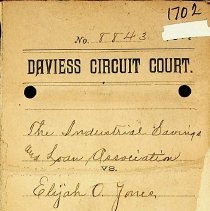 1702
No. 8843
DAVIESS CIRCUIT COURT.
The Industrial Savings
& Loan Association
vs.
Elijah O. Jones